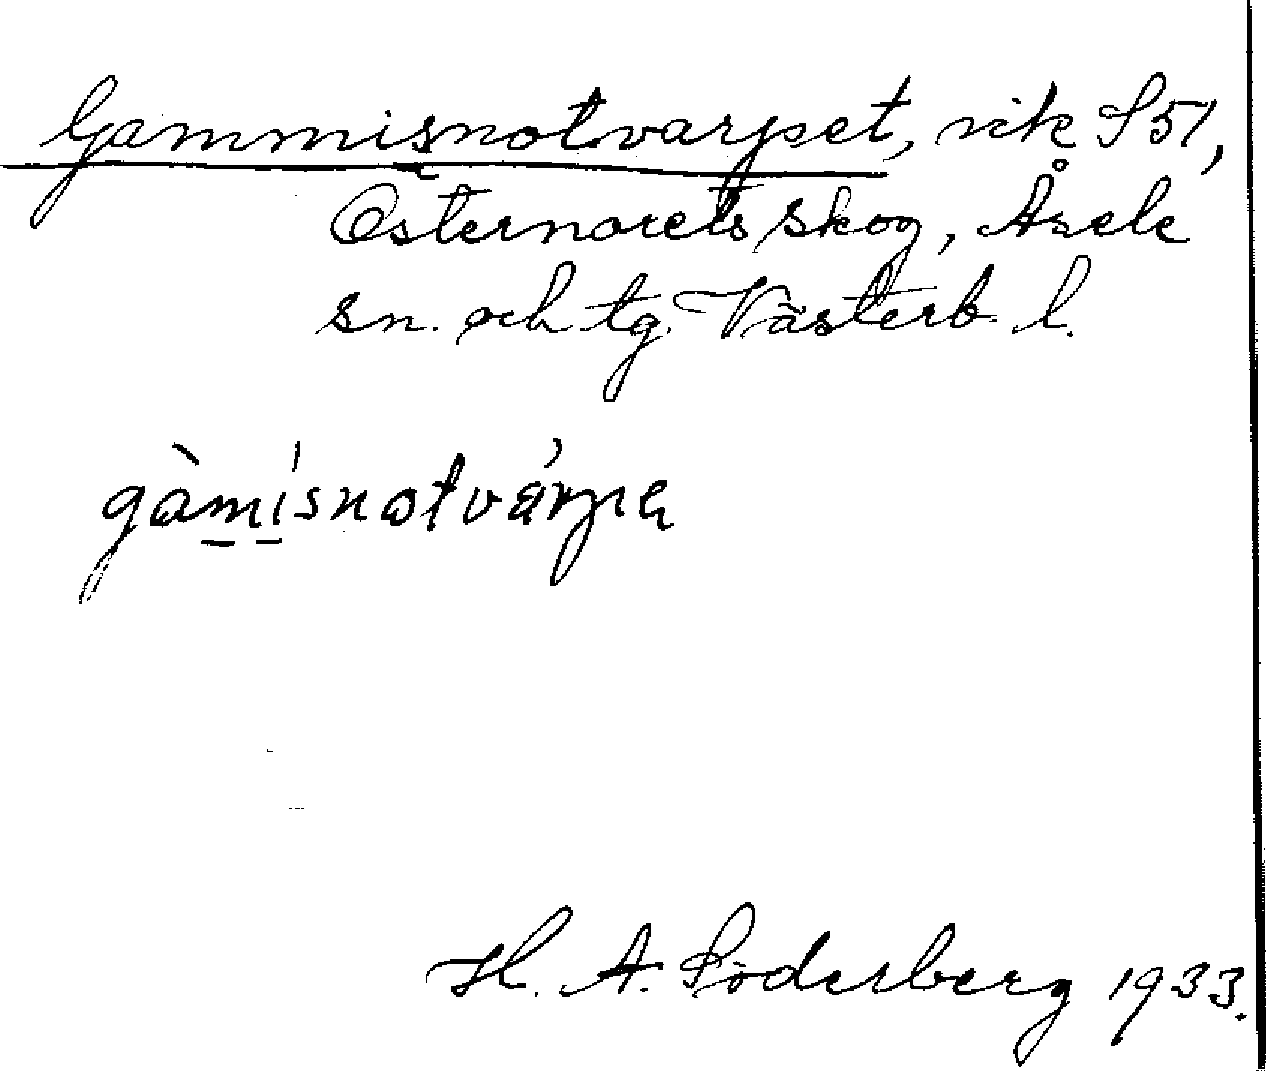 Gammisnotvarpet, vik S51,
Östernorets skog, Åsele
sn. och tg. Västerb. l.
gàmisnotvárpe
H. A. Söderberg 1933.